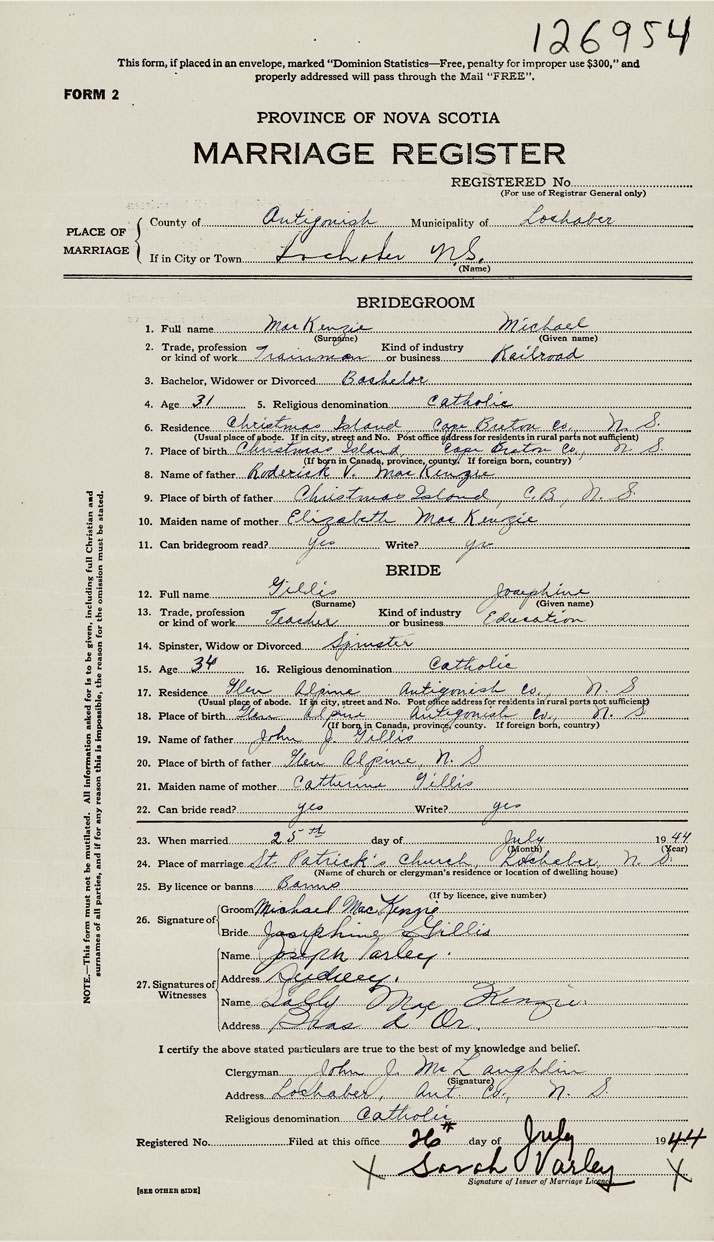 126954
This form, if placed in an envelope, marked "Dominion Statistics—Free, penalty for improper use $300," and
properly addressed will pass through the Mail "FREE".
FORM 2
PROVINCE OF NOVA SCOTIA
MARRIAGE REGISTER
REGISTERED No.
(For use of Registrar General only)
PLACE OF MARRIAGE
County of Antigonish Municipality of Lochaber
If in City or Town Lochaber N.S.
(Name)
BRIDEGROOM
1. Full name MacKenzie Michael
(Surname) (Given name)
2. Trade, profession or kind of work Trainman Kind of industry or business Railroad
3. Bachelor, Widower or Divorced Bachelor
4. Age 31 5. Religious denomination Catholic
6. Residence Christmas Island, Cape Breton Co., N. S.
(Usual place of abode. If in city, street and No. Post office address for residents in rural parts not sufficient)
7. Place of birth Christmas Island, Cape Breton Co., N. S
(If born in Canada, province, county. If foreign born, country)
8. Name of father Roderick V. MacKenzie
9. Place of birth of father Christmas Island, C.B., N. S.
10. Maiden name of mother Elizabeth MacKenzie
11. Can bridegroom read? yes Write? yes
BRIDE
12. Full name Gillis Josephine
(Surname) (Given name)
13. Trade, profession or kind of work Teacher Kind of industry or business Education
14. Spinster, Widow or Divorced Spinster
15. Age 34 16. Religious denomination Catholic
17. Residence Glen Alpine Antigonish Co., N. S
(Usual place of abode. If in city, street and No. Post office address for residents in rural parts not sufficient)
18. Place of birth Glen Alpine Antigonish Co., N. S
(If born in Canada, province, county. If foreign born, country)
19. Name of father John J. Gillis
20. Place of birth of father Glen Alpine, N. S
21. Maiden name of mother Catherine Gillis
22. Can bride read? yes Write? yes
23. When married 25th day of July 1944
(Month) (Year)
24. Place of marriage St. Patrick's Church, Lochaber, N. S.
(Name of church or clergyman's residence or location of dwelling house)
25. By licence or banns Banns
(If by licence, give number)
26. Signature of
Groom Michael MacKenzie
Bride Josephine Gillis
27. Signatures of Witnesses
Name Joseph Varley.
Address Sydney.
Name Sally MacKenzie.
Address Bras d Or.
I certify the above stated particulars are true to the best of my knowledge and belief.
Clergyman John J. McLaughlin
(Signature)
Address Lochaber, Ant. Co., N. S.
Religious denomination Catholic
Registered No. Filed at this office 26th day of July 1944
X Sarah Varley X
Signature of Issuer of Marriage Licence
[SEE OTHER SIDE]
NOTE.—This form must not be mutilated. All information asked for is to be given, including full Christian and
surnames of all parties, and if for any reason this is impossible, the reason for the omission must be stated.